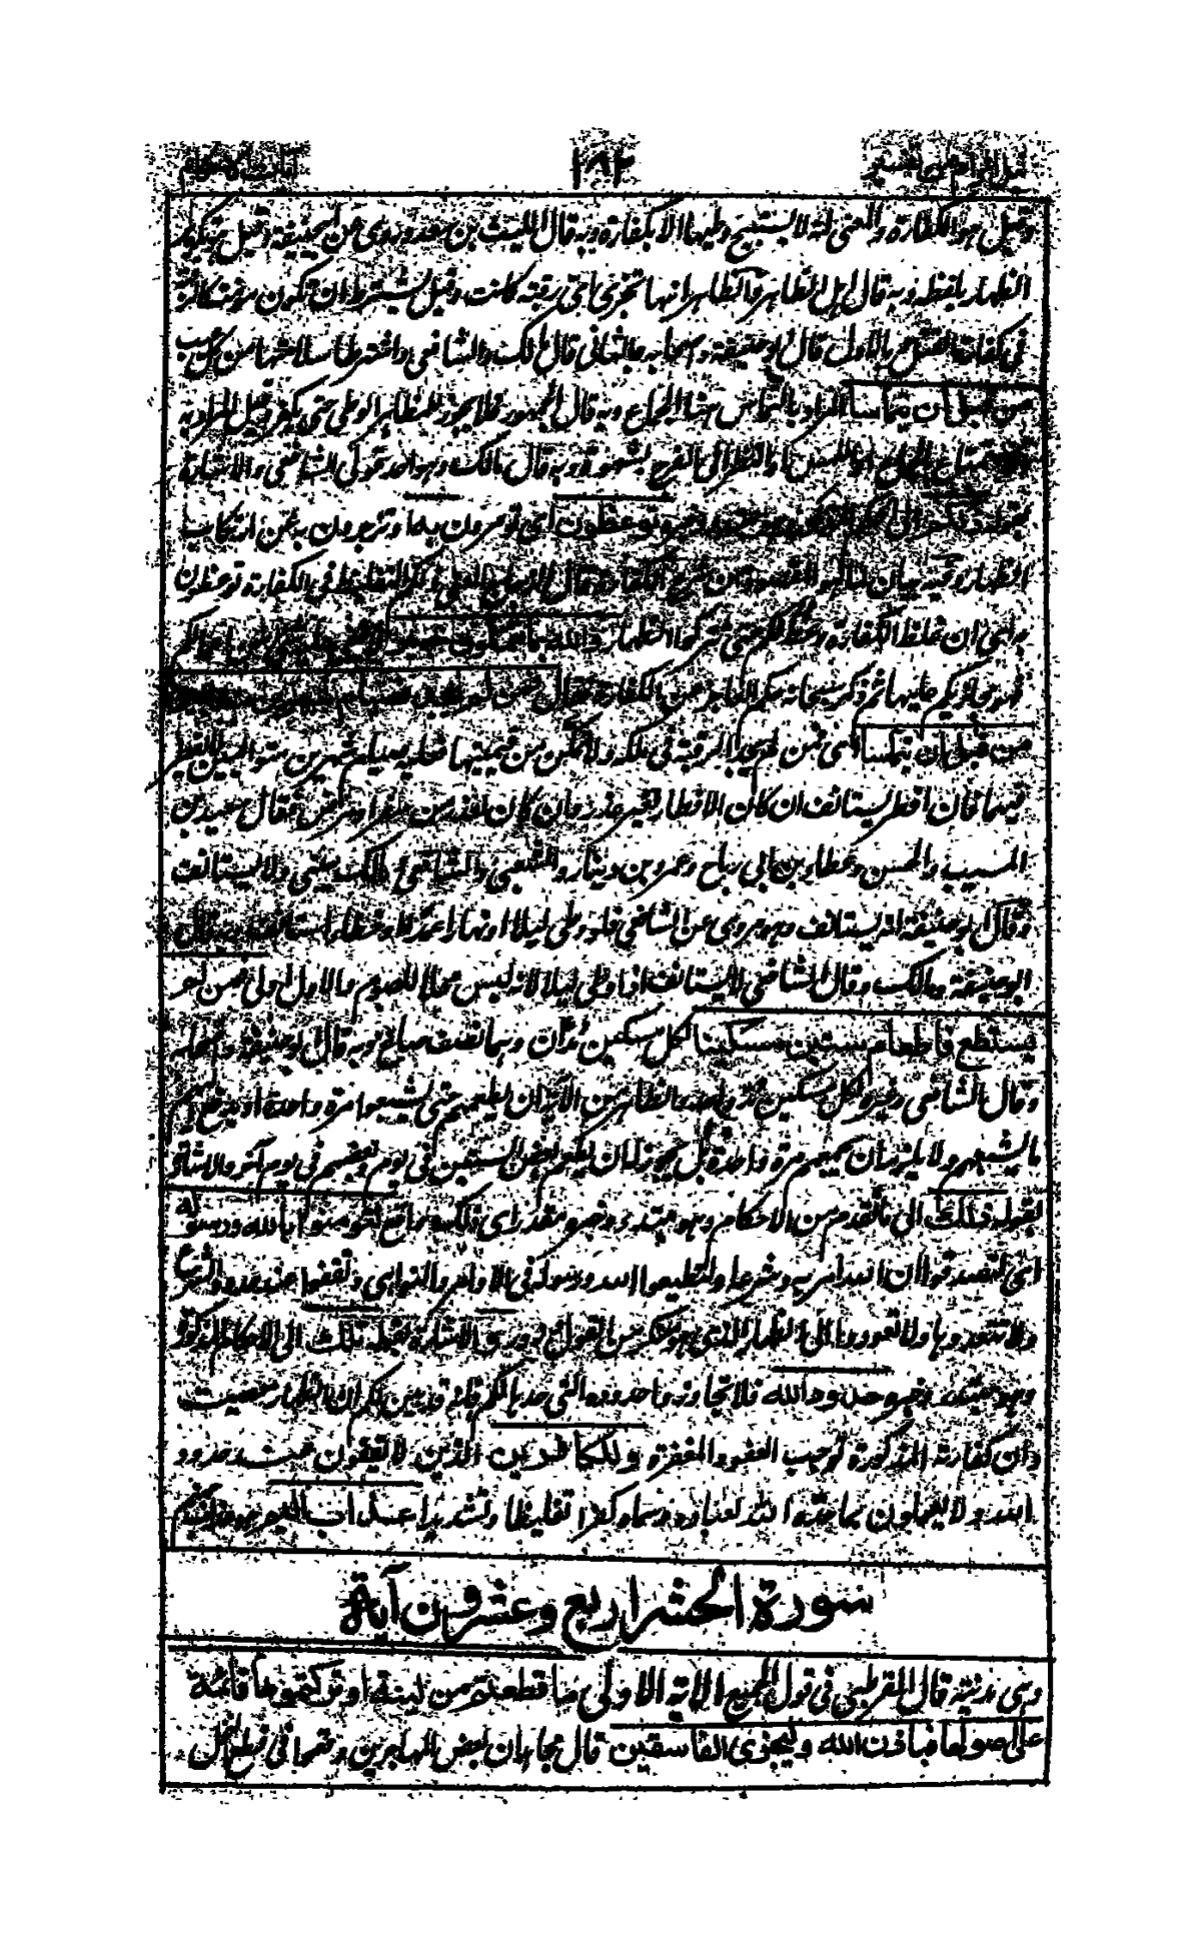 ١٨٢
وقيل هو الكفارة والمعنى انه لا يستبيح وطيها الا بكفارة وبه قال الليث بن سعد وروي عن ابي حنيفة وقيل هو تكرير
الظهار بلفظه وبه قال اهل الظاهر والظاهر انها تجزي اي رقبة كانت وقيل يشترط ان تكون مؤمنة كالرقبة
في كفارة القتل وبالاول قال ابو حنيفة واصحابه وبالثاني قال مالك والشافعي واشترطا سلامتها من كل عيب
من قبل ان يتماسا المراد بالتماس هنا الجماع وبه قال الجمهور فلا يجوز للمظاهر الوطي حتى يكفر وقيل المراد به
الاستمتاع بالجماع او اللمس او النظر الى الفرج بشهوة وبه قال مالك وهو احد قولي الشافعي والاشارة
بقوله ذلكم الى الحكم المذكور وهو مبتدأ وخبره توعظون اي تؤمرون به او تزجرون به عن ارتكاب
الظهار وفيه بيان لما هو المقصود من شرع الكفارة قال الزجاج المعنى ذلكم التغليظ في الكفارة توعظون
به اي ان غلظ الكفارة وعظ لكم حتى تتركوا الظهار والله بما تعملون خبير
فهو مجازيكم عليها ثم ذكر سبحانه حكم العاجز عن الكفارة فقال فمن لم يجد فصيام شهرين متتابعين
من قبل ان يتماسا اي فمن لم يجد الرقبة في ملكه ولا تمكن من قيمتها فعليه صيام شهرين متواليين لا يفطر
فيهما فان افطر يستانف ان كان الافطار لغير عذر وان كان لعذر من سفر او مرض فقال سعيد بن
المسيب والحسن وعطاء بن ابي رباح وعمرو بن دينار والشعبي والشافعي ومالك يبني ولا يستانف
وقال ابو حنيفة انه يستانف وهو مروي عن الشافعي فلو وطي ليلا او نهارا عمدا او خطأ استانف وبه قال
ابو حنيفة ومالك وقال الشافعي لا يستانف اذا وطي ليلا لانه ليس محلا للصوم والاول اولى فمن لم
يستطع فاطعام ستين مسكينا لكل مسكين مدان وهما نصف صاع وبه قال ابو حنيفة واصحابه
وقال الشافعي وغيره لكل مسكين مد واحد والظاهر من الآية ان يطعمهم حتى يشبعوا مرة واحدة او يدفع اليهم
ما يشبعهم ولا يلزمه ان يجمعهم مرة واحدة بل يجوز له ان يطعم بعض الستين في يوم وبعضهم في يوم آخر والاشارة
بقوله ذلك الى ما تقدم من الاحكام وهو مبتدء وخبره مقدر اي ذلك واقع لتؤمنوا بالله ورسوله
اي لتصدقوا ان الله امر به وشرعه او لتطيعوا الله ورسوله في الاوامر والنواهي وتقفوا عند حدود الشرع
ولا تتعدوها ولا تعودوا الى الظهار الذي هو منكر من القول وزور والاشارة بقوله تلك الى الاحكام المذكورة
وهو مبتدء وخبره حدود الله فلا تجاوزوا حدوده التي حدها لكم فانه قد بين لكم ان الظهار معصية
وان كفارته المذكورة توجب العفو والمغفرة وللكافرين الذين لا يقفون عند حدود
الله ولا يعملون بما حده الله لعباده وسماه كفرا تغليظا وتشديدا عذاب اليم وهو عذاب جهنم
سورة الحشر اربع وعشرون آية
وهي مدنية قال القرطبي في قول الجميع الآية الاولى ما قطعتم من لينة او تركتموها قائمة
على اصولها فباذن الله وليخزي الفاسقين قال مجاهد ان بعض المهاجرين وقعوا في قطع النخل